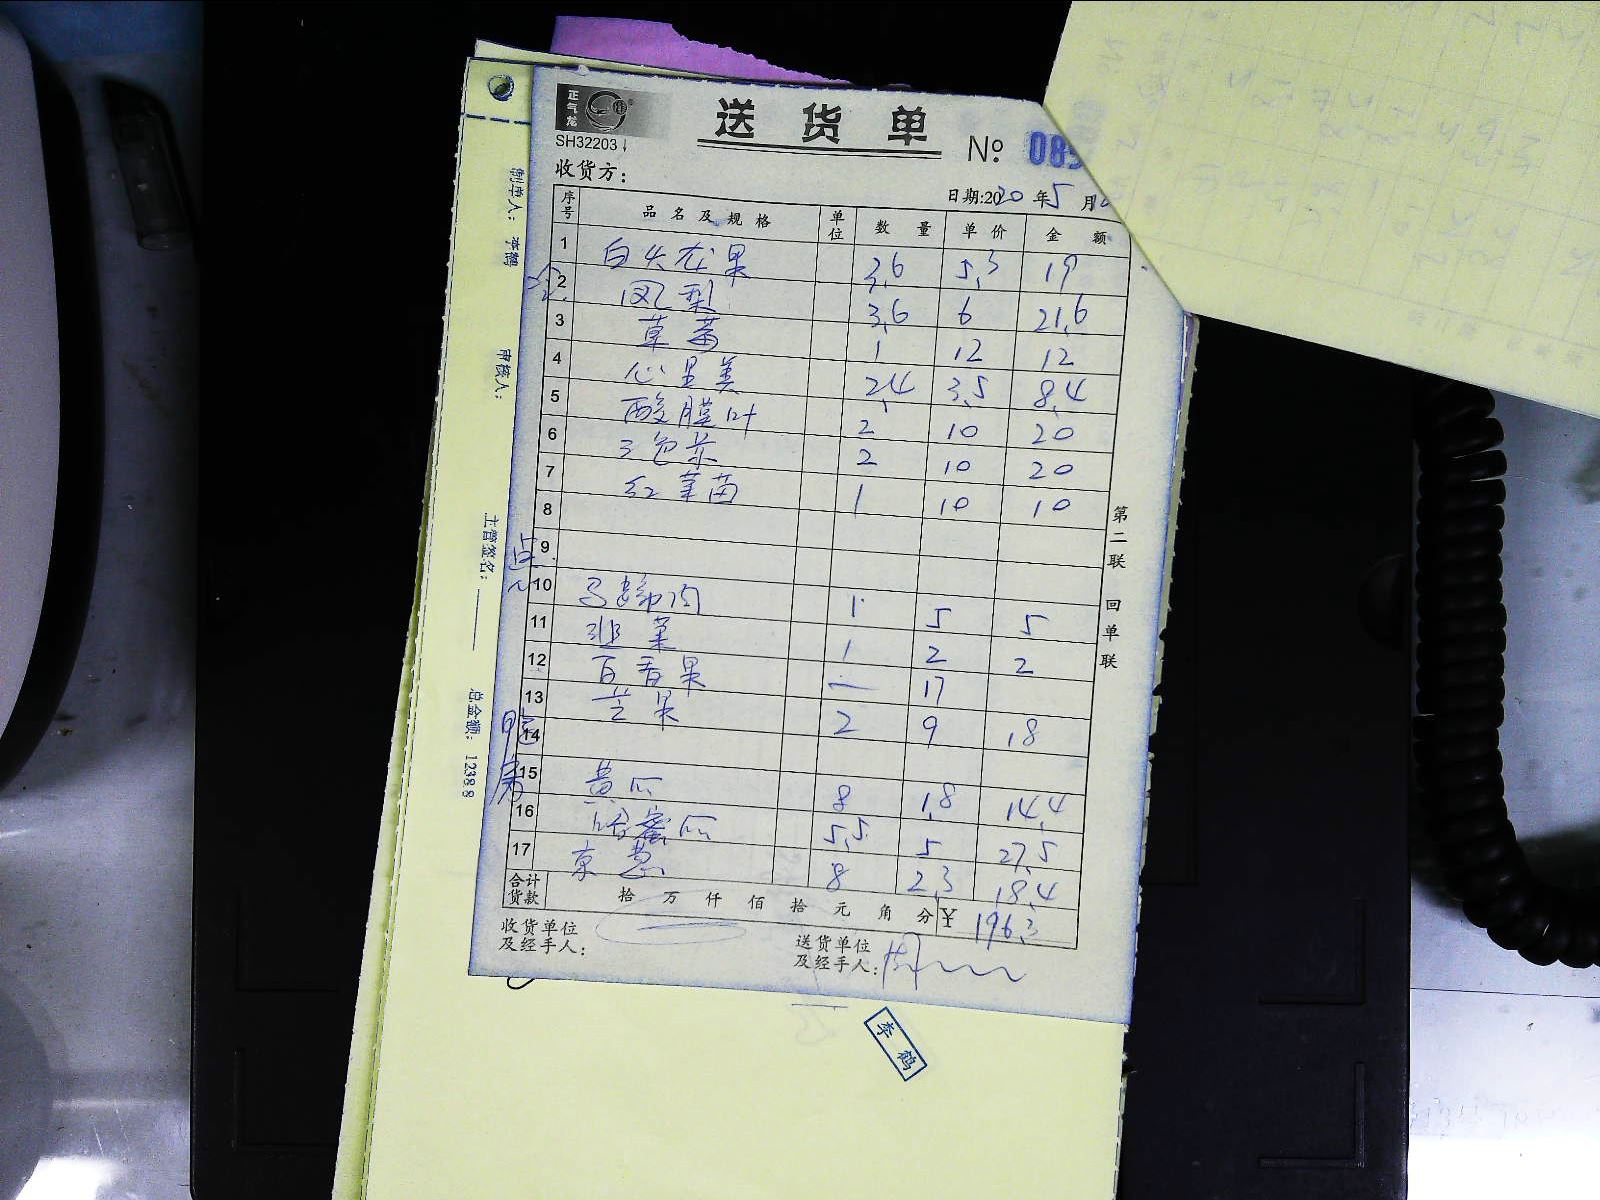 正气龙
SH32203
送货单
No 085
收货方:
日期:2020年5月2
序号 品名及规格 单位 数量 单价 金额
1 白火龙果 3.6 5.3 19
2 凤梨 3.6 6 21.6
3 草莓 1 12 12
4 心里美 2.4 3.5 8.4
5 酸膜叶 2 10 20
6 三色苏 2 10 20
7 红菜苗 1 10 10
8
9
10 马蹄肉 1 5 5
11 韭菜 1 2 2
12 百香果 一 17
13 芒果 2 9 18
14
15 黄瓜 8 1.8 14.4
16 哈密瓜 5.5 5 27.5
17 京葱 8 2.3 18.4
合计货款 拾 万 仟 佰 拾 元 角 分 ¥ 196.3
收货单位及经手人:
送货单位及经手人:
第二联 回单联
点心
制单人: 李鹤
审核人:
主管签名:
总金额: 1238.8
李鹤